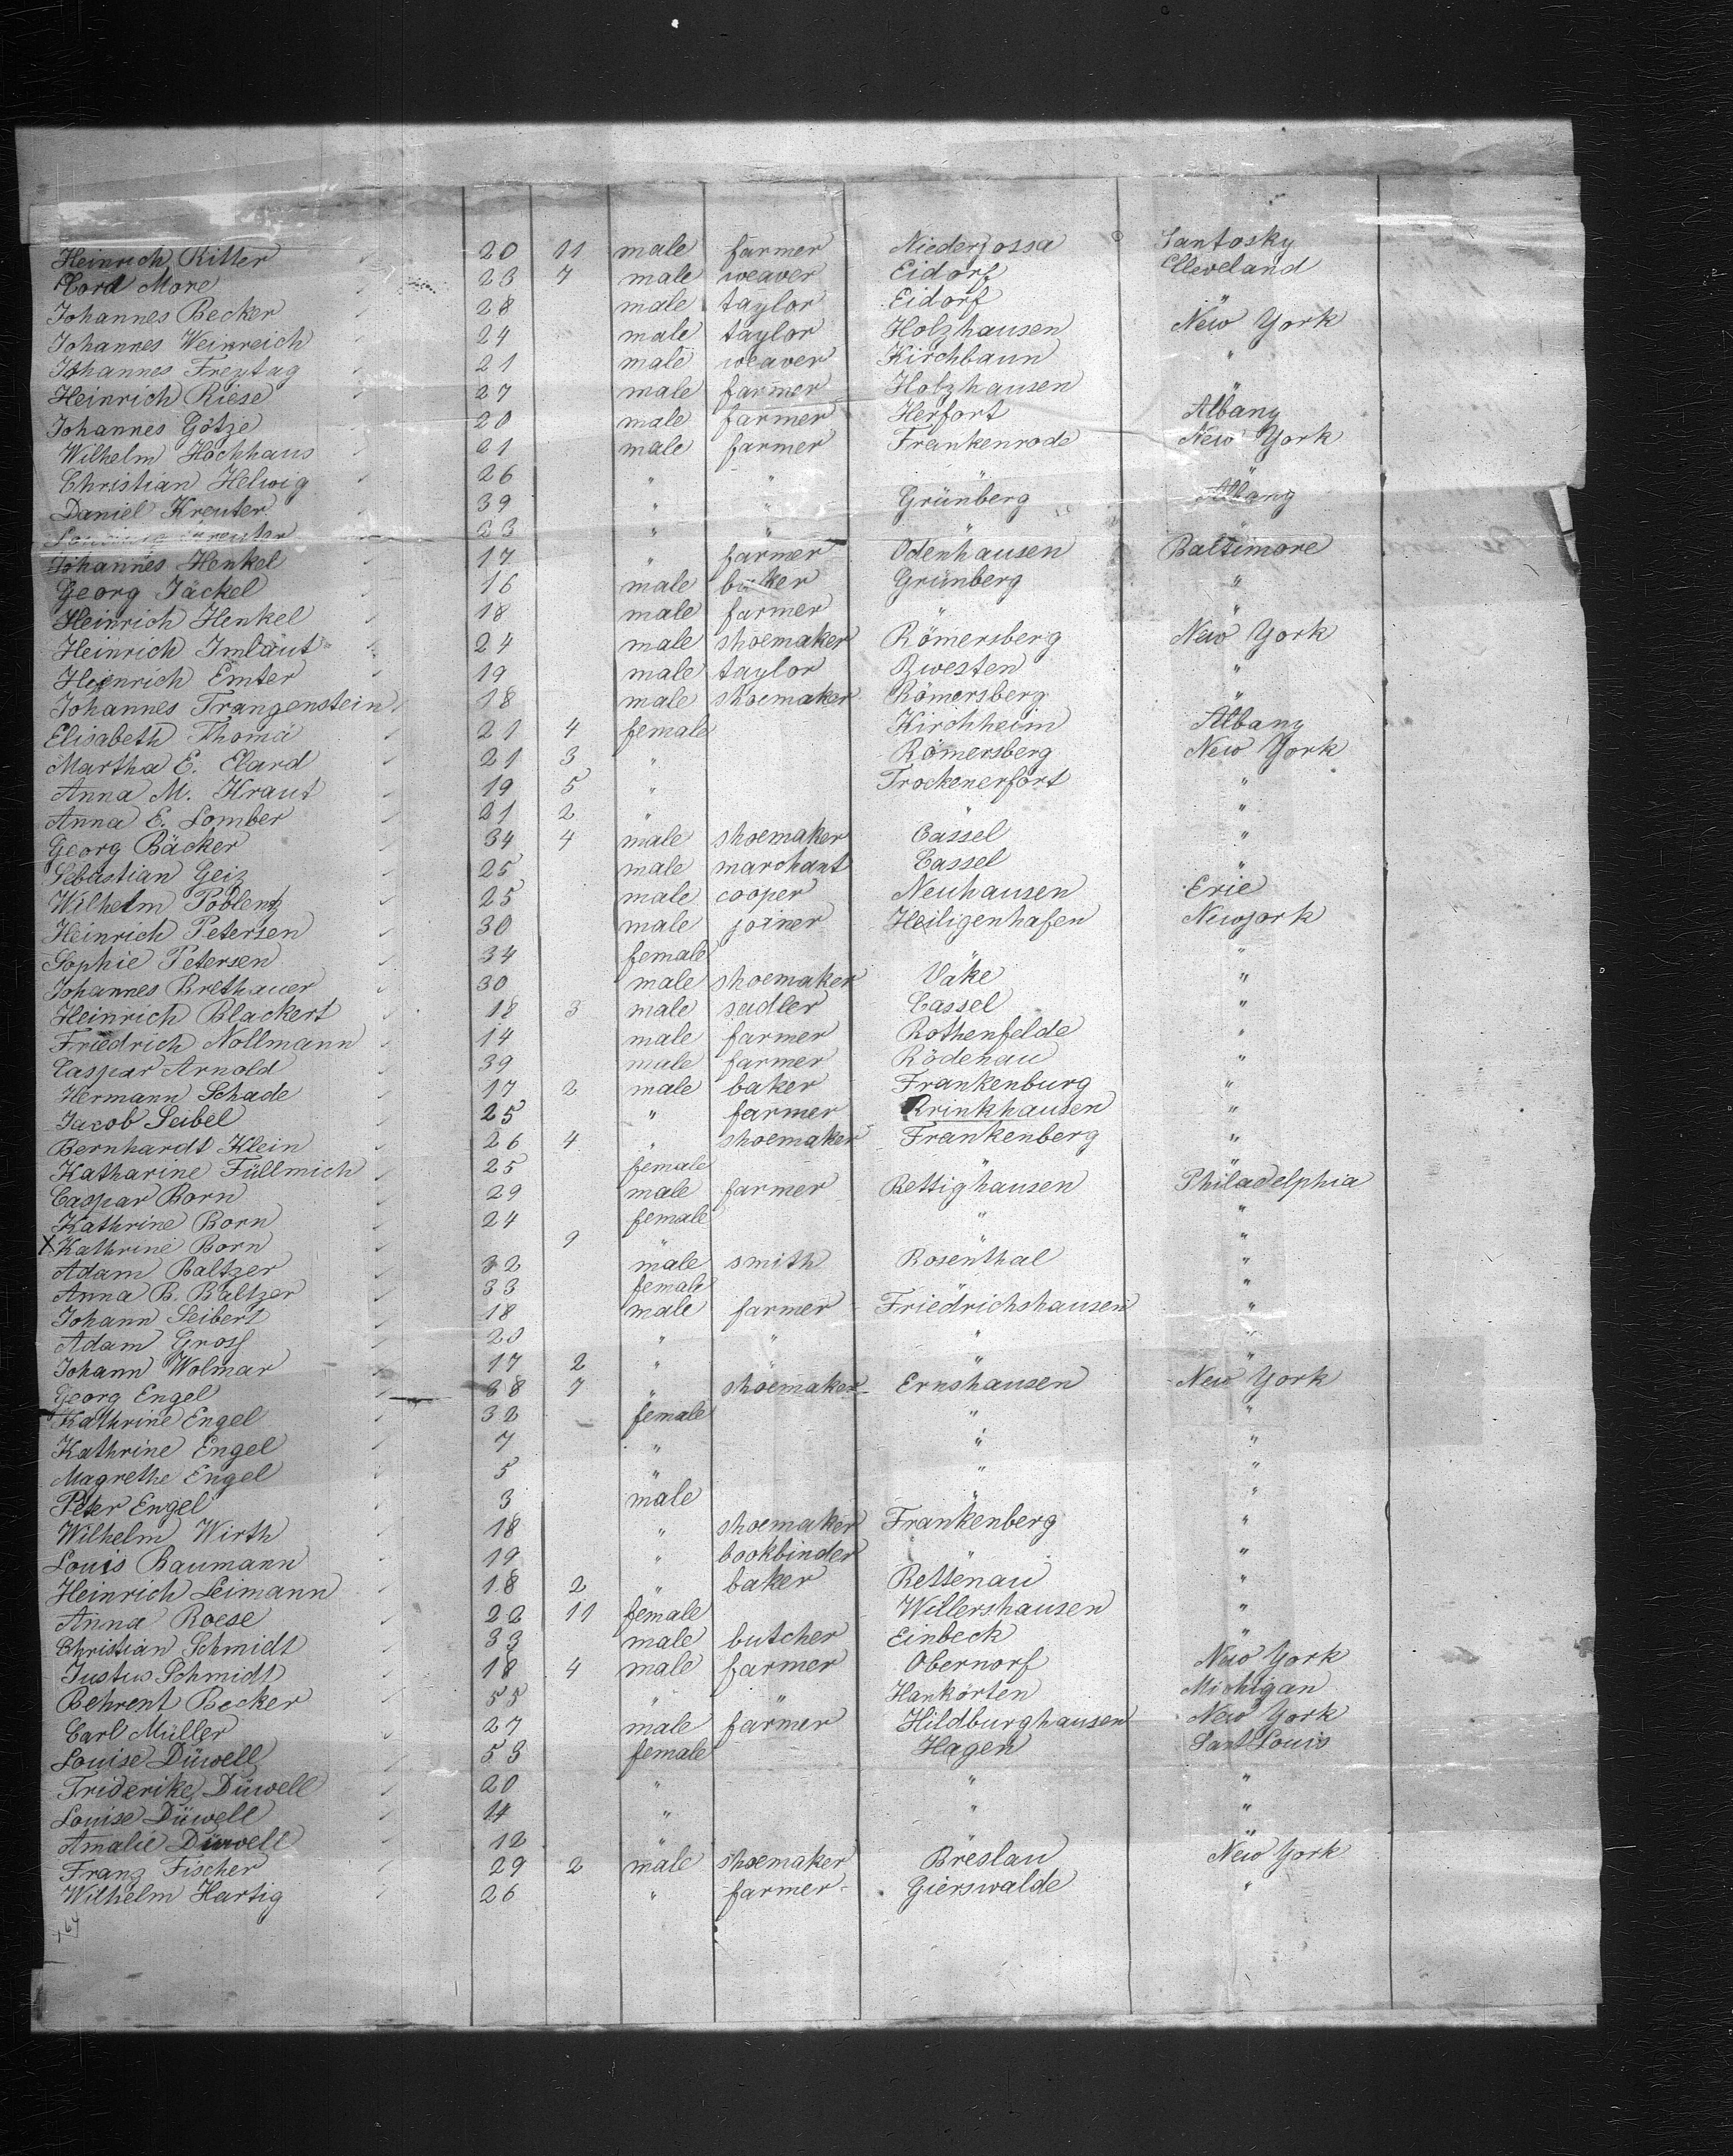 Heinrich Ritter 20 11 male farmer Niederjossa Santosky
Cord More 23 7 male weaver Eidorf Cleveland
Johannes Becker 28 male taylor Eidorf "
Johannes Weinreich 24 male taylor Holzhausen New York
Johannes Freytag 21 male weaver Kirchbaun "
Heinrich Riese 27 male farmer Holzhausen "
Johannes Götze 20 male farmer Herfort Albany
Wilhelm Hochhaus 21 male farmer Frankenrode New York
Christian Helwig 26 " " "
Daniel Kreuter 39 " " Grünberg Albany
Kreuter 23 " " "
Johannes Henkel 17 " farmer Odenhausen Baltimore
Georg Jäckel 16 male Grünberg "
Heinrich Henkel 18 male farmer " "
Heinrich Imlaut 24 male shoemaker Römersberg New York
Heinrich Emter 19 male taylor Zwesten "
Johannes Frangenstein 18 male shoemaker Römersberg "
Elisabeth Thomä 21 4 female Kirchheim Albany
Martha E. Elard 21 3 " Römersberg New York
Anna M. Kraut 19 5 " Trockenerfort "
Anna E. Lomber 21 2 " " "
Georg Bäcker 34 4 male shoemaker Cassel "
Sebastian Geiz 25 male marchant Cassel "
Wilhelm Poblentz 25 male cooper Neuhausen Erie
Heinrich Petersen 30 male joiner Heiligenhafen Newyork
Sophie Petersen 34 female "
Johannes Brethauer 30 male shoemaker Väke "
Heinrich Blackert 18 3 male sadler Cassel "
Friedrich Nollmann 14 male farmer Rothenfelde "
Caspar Arnold 39 male farmer Rödenau "
Hermann Schade 17 2 male baker Frankenburg "
Jacob Seibel 25 " farmer Brinkhausen "
Bernhardt Klein 26 4 " shoemaker Frankenberg "
Katharine Füllmich 25 female " "
Caspar Born 29 male farmer Bettighausen Philadelphia
Kathrine Born 24 female " "
X Kathrine Born 9 " "
Adam Baltzer 32 male smith Rosenthal "
Anna B. Baltzer 33 female "
Johann Seibert 18 male farmer Friedrichshausen "
Adam Gross 20 " " " "
Johann Wolmar 17 2 " " "
Georg Engel 38 7 " shoemaker Ernshausen New York
Kathrine Engel 32 female " "
Kathrine Engel 7 " " "
Magrethe Engel 5 " " "
Peter Engel 3 male " "
Wilhelm Wirth 18 " shoemaker Frankenberg "
Louis Baumann 19 " bookbinder " "
Heinrich Leimann 18 2 " baker Rettenau "
Anna Roese 22 11 female Willershausen "
Christian Schmidt 33 male butcher Einbeck "
Justus Schmidt 18 4 male farmer Obernorf New York
Behrent Becker 55 " " Hankörten Michigan
Carl Müller 27 male farmer Hildburghausen New York
Louise Düwell 53 female Hagen Sant Louis
Friderike Düwell 20 " " "
Louise Düwell 14 " " "
Amalie Düwell 12 " "
Franz Fischer 29 2 male shoemaker Breslau New York
Wilhelm Hartig 26 " farmer Gierswalde "